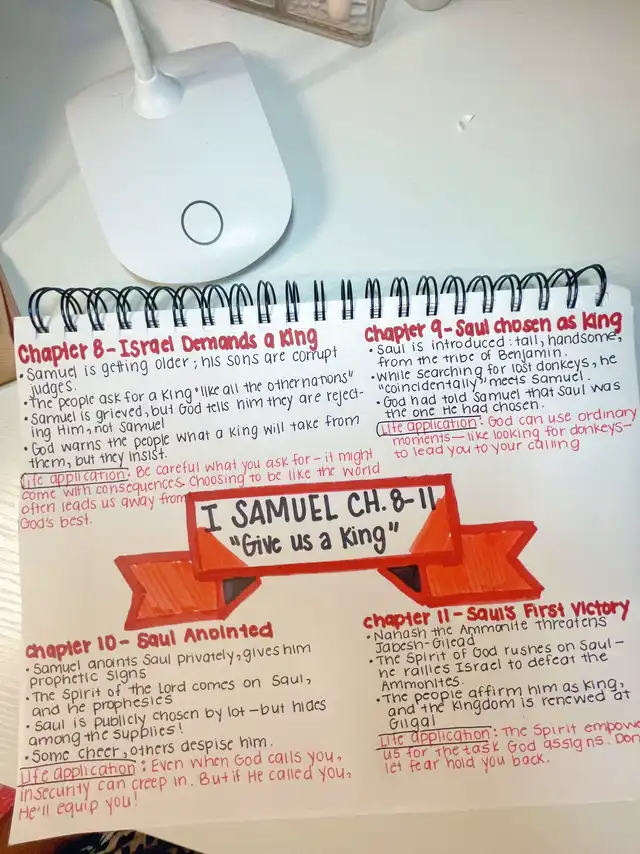 Chapter 8 - Israel Demands a King
• Samuel is getting older; his sons are corrupt
judges.
• The people ask for a King "like all the other nations"
• Samuel is grieved, but God tells him they are reject-
ing Him, not Samuel
• God warns the people what a King will take from
them, but they insist.
Life application: Be careful what you ask for - it might
come with consequences. Choosing to be like the world
often leads us away from
God's best.
Chapter 9 - Saul chosen as King
• Saul is introduced: tall, handsome,
from the tribe of Benjamin.
• While searching for lost donkeys, he
"coincidentally" meets Samuel.
• God had told Samuel that Saul was
the one He had chosen.
Life application: God can use ordinary
moments — like looking for donkeys —
to lead you to your calling
I SAMUEL CH. 8-11
"Give us a King"
Chapter 10 - Saul Anointed
• Samuel anoints Saul privately, gives him
prophetic signs
• The Spirit of the Lord comes on Saul,
and he prophesies
• Saul is publicly chosen by lot - but hides
among the supplies!
• Some cheer, others despise him.
Life application: Even when God calls you,
insecurity can creep in. But if He called you,
He'll equip you!
Chapter 11 - Saul's First Victory
• Nahash the Ammonite threatens
Jabesh-Gilead
• The Spirit of God rushes on Saul -
he rallies Israel to defeat the
Ammonites.
• The people affirm him as King,
and the Kingdom is renewed at
Gilgal
Life application: The Spirit empowe
us for the task God assigns. Don
let fear hold you back.